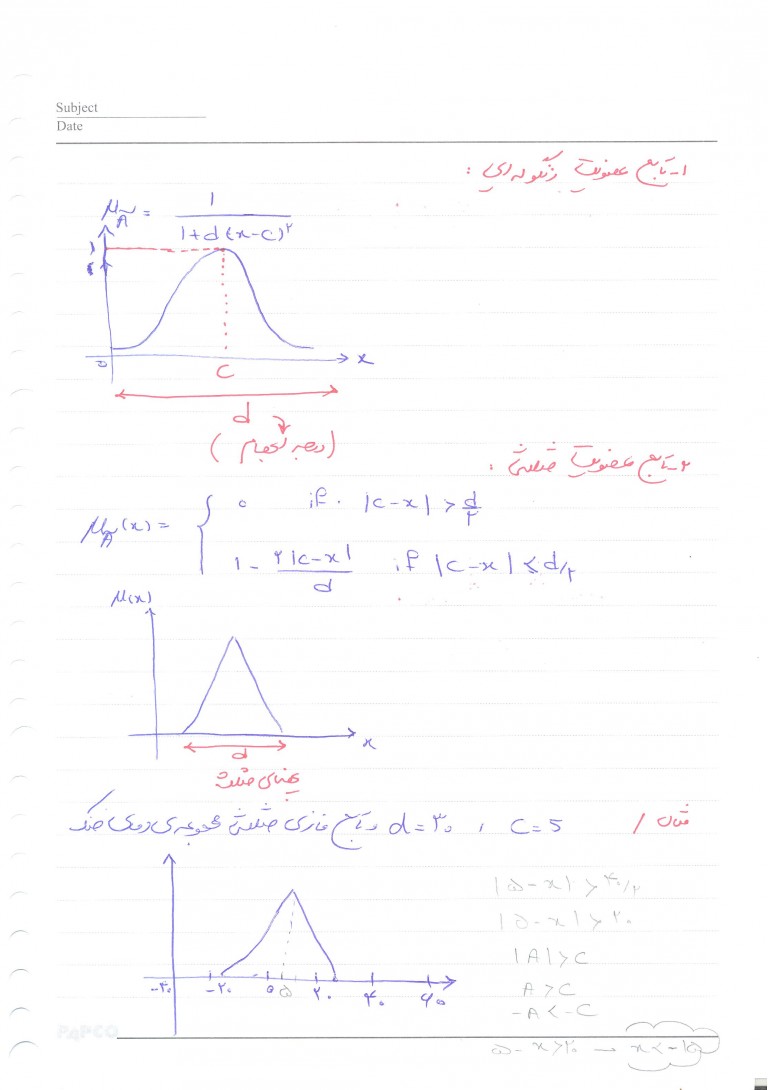 Subject
Date
۱- تابع عضویت زنگوله‌ای :
μ_Ã = 1 / (1+d(x-c)^۲)
۱
0 x
C
d
(درجه انجام)
۲- تابع عضویت مثلثی :
μ_Ã(x) = { 0 if |c-x| > d/۲
1 - ۲|c-x| / d if |c-x| ≤ d/۲
μ(x)
x
d
پهنای مثلث
مثال / C=5 ، d=۳۰ و تابع فازی مثلثی مجموعه‌ی دمای خنک
-۴۰ -۲۰ 0 ۵ ۲۰ ۴۰ ۶۰
|۵-x| > ۴۰/۲
|۵-x| > ۲۰
|A| > C
A > C
-A < -C
۵-x > ۲۰ → x < -۱۵
PAPCO